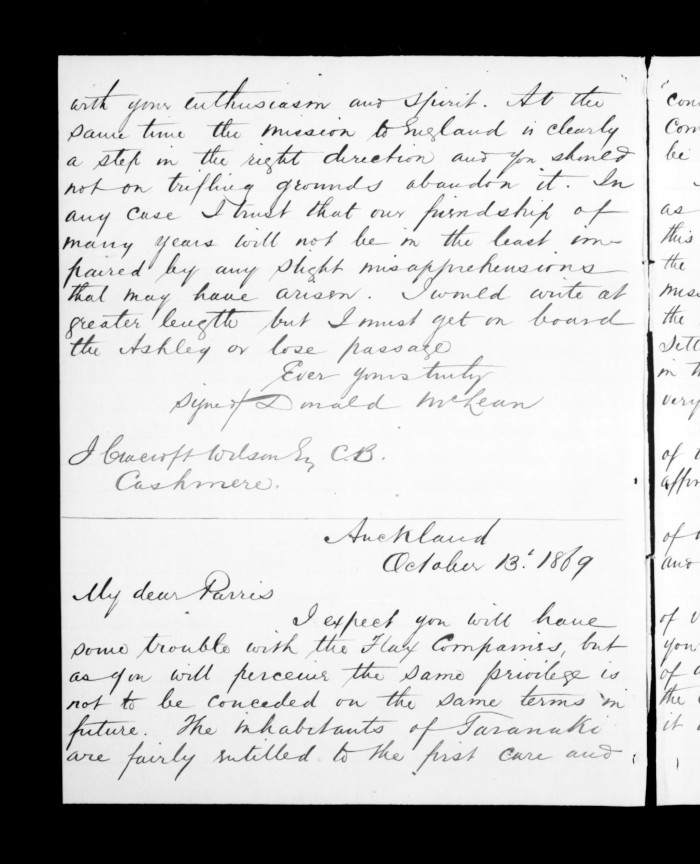 with your enthusiasm and spirit. At the
same time the mission to England is clearly
a step in the right direction and you should
not on trifling grounds abandon it. In
any case I trust that our friendship of
many years will not be in the least im-
paired by any slight misapprehensions
that may have arisen. I would write at
greater length but I must get on board
the Ashley or lose passage
Ever yours truly
Signed Donald McLean
J Cracroft Wilson Esq C.B.
Cashmere.
Auckland
October 13. 1869
My dear Parris
I expect you will have
some trouble with the Flax Companies, but
as you will perceive the same privilege is
not to be conceded on the same terms in
future. The inhabitants of Taranaki
are fairly entitled to the first care and
con
Com
be
as
this
the
the
in
very
of
of
and
of
you
of
the
it